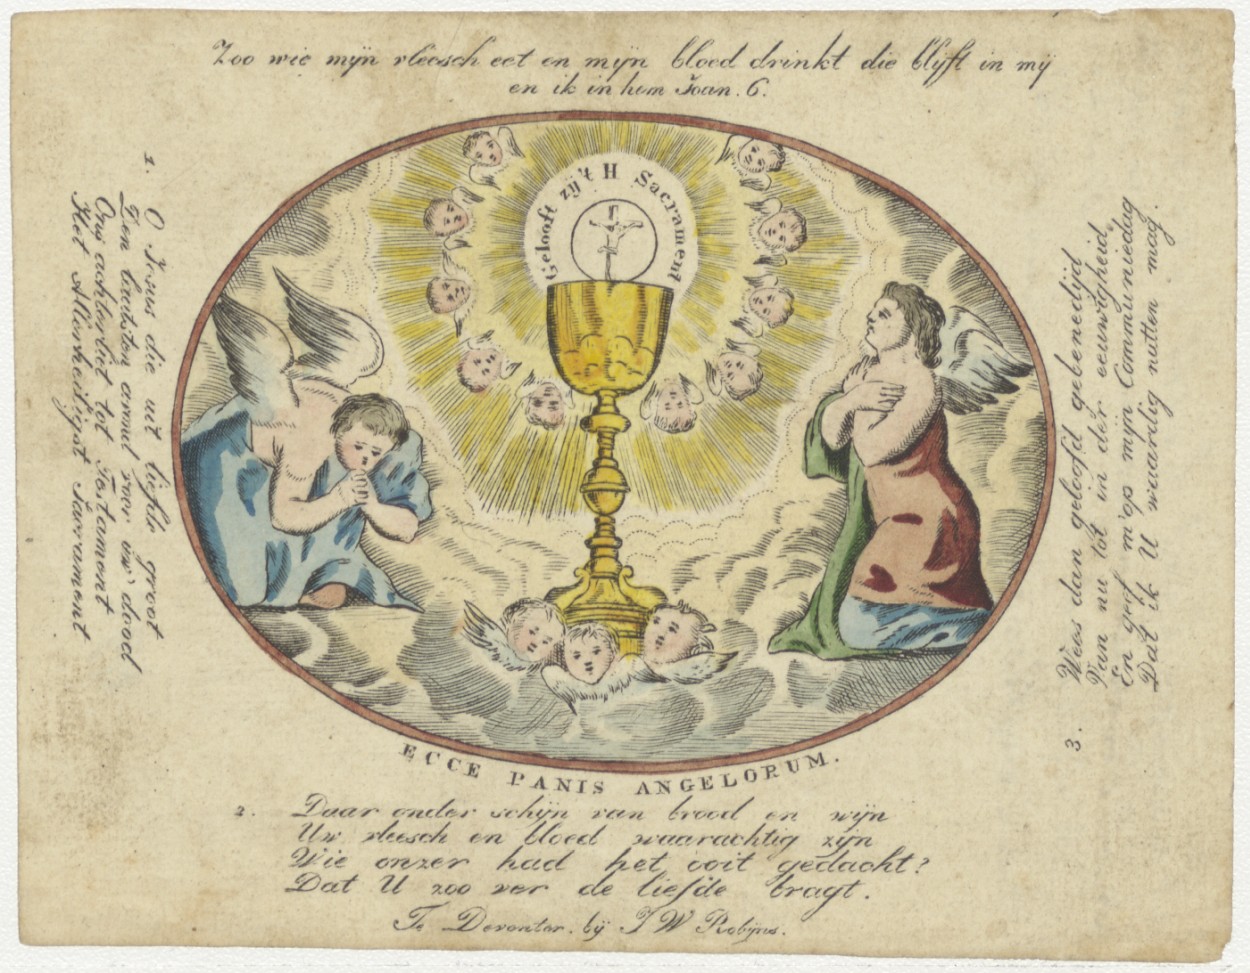 Zoo wie mijn vleesch eet en mijn bloed drinkt die blijft in mij
en ik in hem Joan. 6.
Gelooft zij 't H Sacrament
1.
O Jesus die uit liefde groot
Den laatsten avond voor uw' dood
Ons achterliet tot Testament
Het Allerheiligst Sacrament
ECCE PANIS ANGELORUM.
2.
Daar onder schijn van brood en wijn
Uw vleesch en bloed waarachtig zijn
Wie onzer had het ooit gedacht?
Dat U zoo ver de liefde bragt.
3.
Wees dan geloofd gebenedijd
Van nu tot in der eeuwigheid,
En geef m'op mijn Communiedag
Dat ik U waardig nutten mag.
Te Deventer. bij J W Robijns.